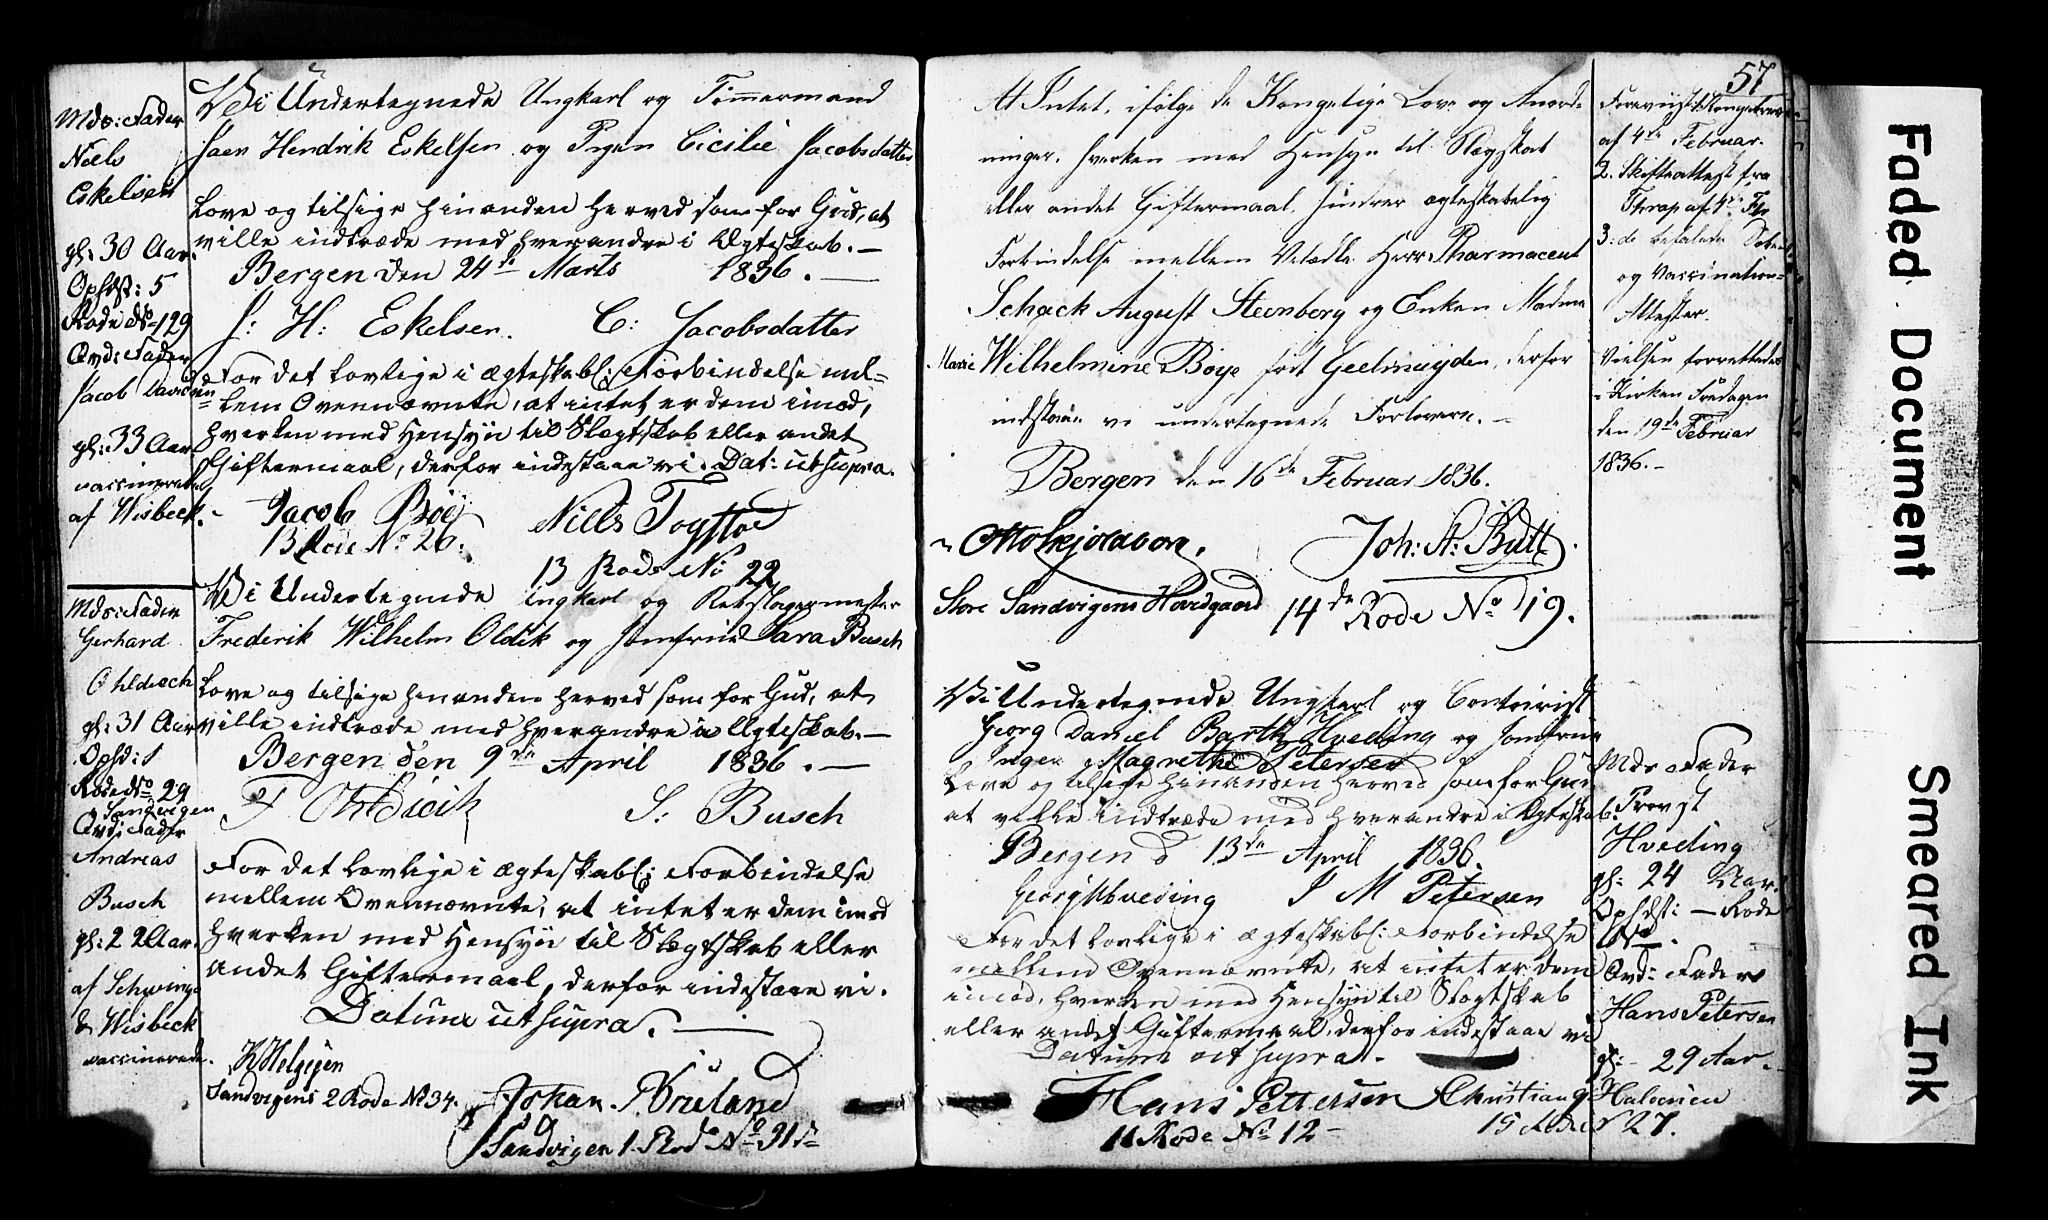 Mds: Fader
Niels
Eskelsen
gl: 30 Aar.
Ophdst: 5
Rode No 129
Qvd: Fader
Jacob Davidsen
gl: 33 Aar
vaccinerede
af Wisbeck.
Vi Undertegnede Ungkarl og Tømmermand
Jaen Hendrik Eskelsen og Pigen Cicilie Jacobsdatter
Love og tilsige hinanden herved som for Gud, at
ville indtræde med hverandre i Ægteskab. —
Bergen den 24de Marts 1836. —
J: H: Eskelsen. C: Jacobsdatter
For det Lovlige i ægteskabl: Forbindelse mel-
lem Ovennævnte, at intet er dem imod,
hverken med Hensyn til Slægtskab eller andet
Giftermaal, derfor indestaae vi. Dat: ut supra.
Jacob Böe Niels
13 Rode No 26. 13 Rode No 22
Mds: Fader
Gerhard
Ohldiech
gl: 31 Aar
Ophd: 1
Rode No 29
Sandvigen
Qvd: Fader
Andreas
Busch
gl: 22 Aar.
af Schwings
& Wisbeck
vaccinerede.
Vi Undertegnede Ungkarl og Rebslagermester
Frederik Wilhelm Oldik og Jomfrue Sara Busch
Love og tilsige hinanden herved som for Gud, at
ville indtræde med hverandre i Ægteskab. —
Bergen den 9de April 1836. —
F S: Busch
For det Lovlige i ægteskabl: Forbindelse
mellem Ovennævnte, at intet er dem imod
hverken med Hensyn til Slægtskab eller
andet Giftermaal, derfor indestaae vi.
Datum ut supra. —
Sandvigens 2 Rode No 34. Johan
Sandvigen 1. Rode No 31
57
At Intet, ifølge de Kongelige Love og Anord-
ninger, hverken med Hensyn til Slægskab
eller andet Giftermaal, hindrer ægteskabelig
Forbindelse mellem Velædle Herr Pharmaceut
Schack August Steenberg og Enken Madme
Marie Wilhelmine Böye født Geelmuyden, derfor
indstaae vi undertegnede Forlovere. —
Bergen den 16de Februar 1836.
Joh: A: Bull.
Store Sandvigens Hovedgaard 14de Rode No 19.
Foreviist Kongebrev
af 4de Februar.
2. Skifteattest fra
af 4de Feb
3: de befalede Dobe-
og Vaccinations-
Attester.
Vielsen forrettedes
i Kirken Fredagen
den 19de Februar
1836. —
Vi Undertegnede Ungkarl og Contoirist
Georg Daniel Barth Hveding og Jomfrue
Inger Magrethe Petersen
Love og tilsige hinanden herved som for Gud
at ville indtræde med hverandre i Ægteskab.
Bergen d 13de April 1836.
Georg Hveding I M Petersen
For det Lovlige i ægteskabl: Forbindelse
mellem Ovennævnte, at intet er dem
imod, hverken med Hensyn til Slægtskab
eller andet Giftermaal, derfor indestaae vi
Datum ut supra. —
Hans Pettersen Christian Halvorsen
11 Rode No 12 15 Rode N 27.
Mds Fader
Provst
Hveding
gl: 24 Aar.
Ophdst: — Rode
No —.
Qvd: Fader
Hans Petersen
gl: - 29 Aar.
Faded Document
Smeared Ink